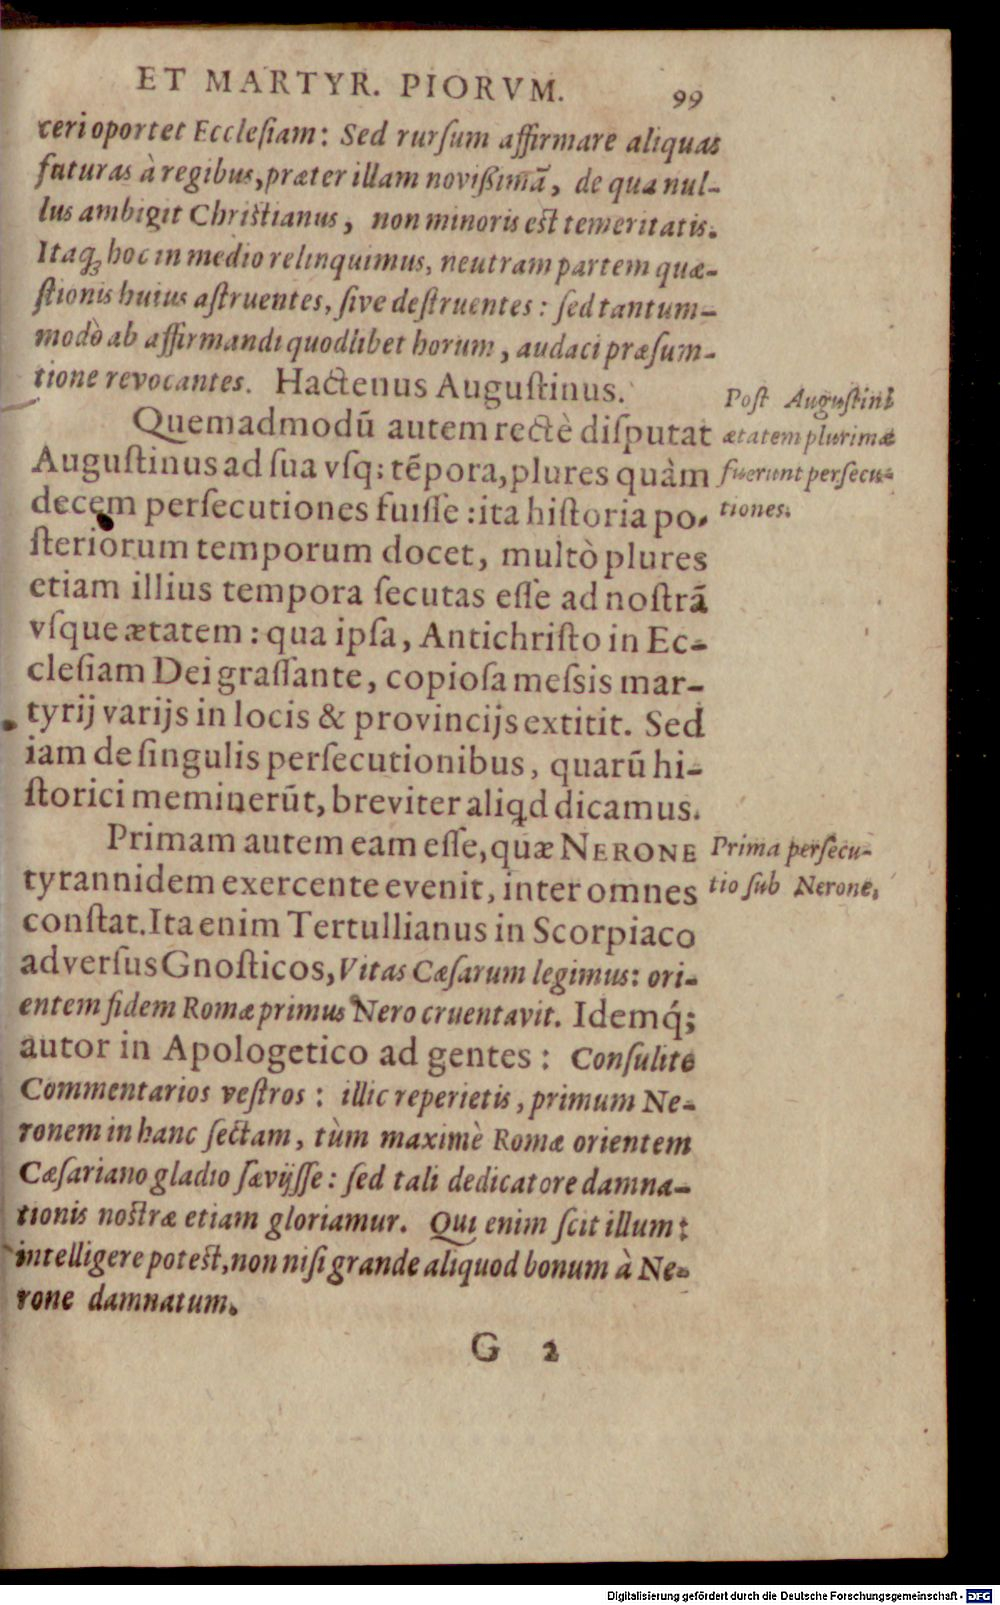 ET MARTYR. PIORVM. 99
ceri oportet Ecclesiam: Sed rursum affirmare aliquas
futuras à regibus, præter illam novißimã, de qua nul-
lus ambigit Christianus, non minoris est temeritatis.
Itaq; hoc in medio relinquimus, neutram partem quæ-
stionis huius astruentes, sive destruentes: sed tantum-
modò ab affirmandi quodlibet horum, audaci præsum-
tione revocantes. Hactenus Augustinus.
Quemadmodũ autem rectè disputat
Augustinus ad sua vsq; tẽpora, plures quàm
decem persecutiones fuisse: ita historia po-
steriorum temporum docet, multò plures
etiam illius tempora secutas esse ad nostrã
vsque ætatem: qua ipsa, Antichristo in Ec-
clesiam Dei grassante, copiosa messis mar-
tyrij varijs in locis & provincijs extitit. Sed
iam de singulis persecutionibus, quarũ hi-
storici meminerũt, breviter aliqd dicamus.
Post Augustini
ætatem plurimæ
fuerunt persecu-
tiones.
Primam autem eam esse, quæ NERONE
tyrannidem exercente evenit, inter omnes
constat. Ita enim Tertullianus in Scorpiaco
adversus Gnosticos, Vitas Cæsarum legimus: ori-
entem fidem Romæ primus Nero cruentavit. Idemq́;
autor in Apologetico ad gentes: Consulite
Commentarios vestros: illic reperietis, primum Ne-
ronem in hanc sectam, tùm maximè Romæ orientem
Cæsariano gladio sævijsse: sed tali dedicatore damna-
tionis nostræ etiam gloriamur. Qui enim scit illum:
intelligere potest, non nisi grande aliquod bonum à Ne-
rone damnatum.
Prima persecu-
tio sub Nerone.
G 2
Digitalisierung gefördert durch die Deutsche Forschungsgemeinschaft - DFG